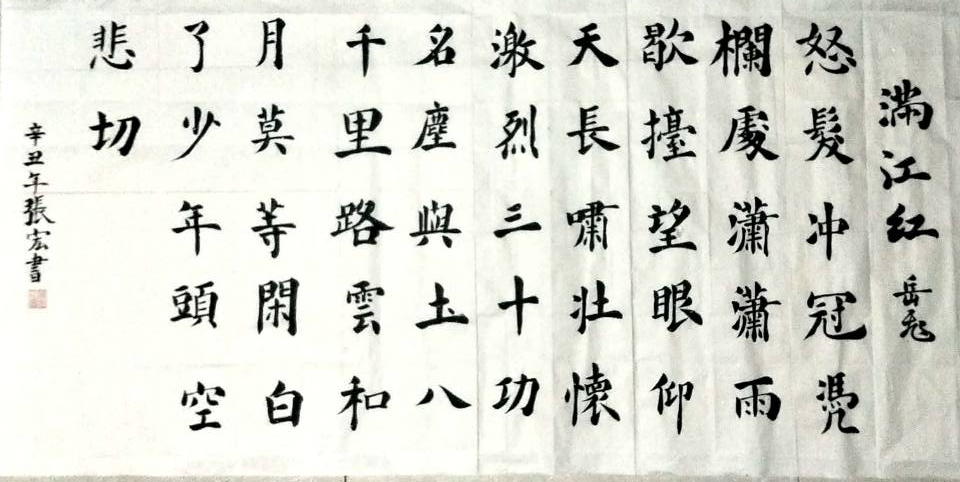 滿江紅 岳飛
怒髮冲冠凴
欄處瀟瀟雨
歇擡望眼仰
天長嘯壯懷
激烈三十功
名塵與土八
千里路雲和
月莫等閑白
了少年頭空
悲切
辛丑年張宏書